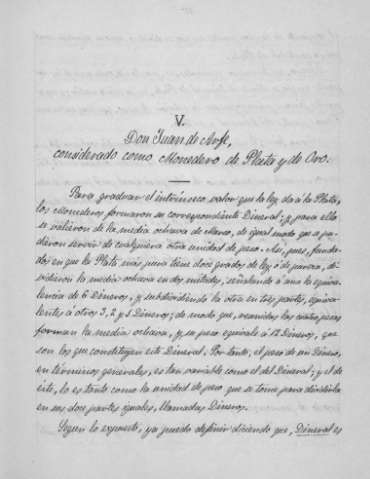 V.
Don Juan de Arfe,
considerado como Monedero de Plata y de Oro.
Para graduar el intrínseco valor que la ley da á la Plata,
los Monederos formaron su correspondiente Dineral; y para ello
se valieron de la media ochava de Marco, de igual modo que pu-
dieron servir de cualquiera otra unidad de peso. Así, pues, funda-
dos en que la Plata más pura tiene doce grados de ley ó de pureza, di-
vidieron la media ochava en dos mitades, señalando á una la equiva-
lencia de 6 Dineros, y subdividiendo la otra en tres partes, equiva-
lentes á otros 3, 2 y 1 Dineros; de modo que, reunidas las cuatro pesas
forman la media ochava, y su peso equivale á 12 Dineros, que
son los que constituyen este Dineral. Por tanto, el peso de un Dinero,
en términos generales, es tan variable como el del Dineral; y el de
éste, lo es tanto como la unidad de peso que se tome para dividirla
en sus doce partes iguales, llamadas Dineros.
Según lo expuesto, ya puedo definir diciendo que, Dineral es